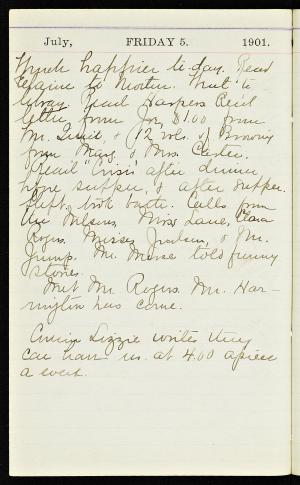 July, FRIDAY 5. 1901.
Much happier to-day. Read
to Mother. Went to
Library. Read Harpers. Rec'd
letter from Joe, $1.00 from
Mr. & 12 vols. of Browning
from Marg & Mrs. Carter.
Read "Crisis" after dinner,
before supper, & after supper.
Slept, took bath. Calls from
the Nelsons, Miss Lane, Clara
Rogers, Misses & Mr.
Jump. Mr. Morse told funny
stories.
Met Mr. Rogers. Mr. Har-
rington has come.
Cousin Lizzie writes they
can have us at 4.00 apiece
a week.